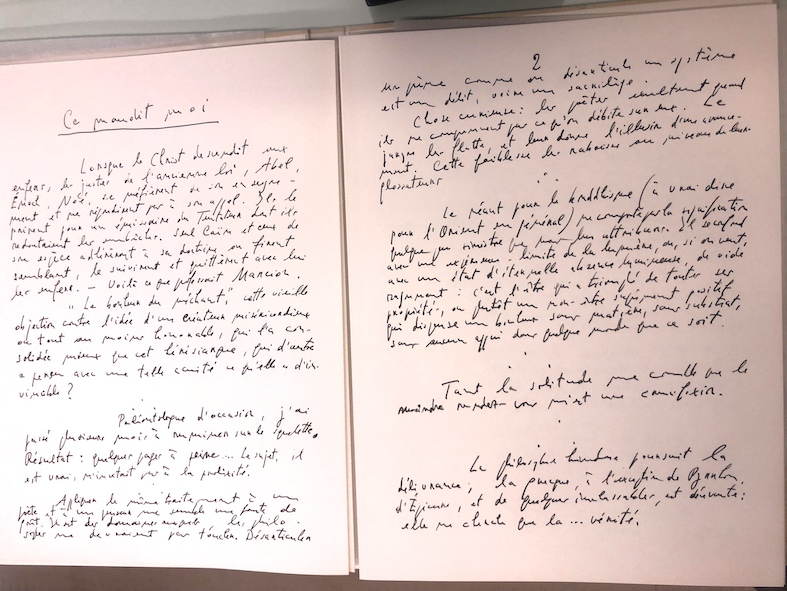 Ce maudit moi
Lorsque le Christ descendit aux
enfers, les justes de l'ancienne loi, Abel,
Énoch, Noé, se méfièrent de son enseigne-
ment et ne répondirent pas à son appel. Ils le
prirent pour un émissaire du Tentateur dont ils
redoutaient les embûches. Seul Caïn et ceux de
son espèce adhérèrent à sa doctrine ou firent
semblant, le suivirent et quittèrent avec lui
les enfers. — Voilà ce que professait Marcion.
"Le bonheur du méchant", cette vieille
objection contre l'idée d'un créateur miséricordieux
ou tout au moins honorable, qui l'a con-
solidée mieux que cet hérésiarque, qui d'autre
a perçu avec une telle acuité ce qu'elle a d'in-
vincible ?
Paléontologue d'occasion, j'ai
passé plusieurs mois à ruminer sur le squelette.
Résultat : quelques pages à peine... Le sujet, il
est vrai, n'invitait pas à la prolixité.
Appliquer le même traitement à un
poète et à un penseur me semble une faute de
goût. Il est des domaines auxquels les philo-
sophes ne devraient pas toucher. Désarticuler
2
un poème comme on désarticule un système
est un délit, voire un sacrilège.
Chose curieuse : les poètes exultent quand
ils ne comprennent pas ce qu'on débite sur eux. Le
jargon les flatte, et leur donne l'illusion d'un avance-
ment. Cette faiblesse les rabaisse au niveau de leurs
glossateurs.
Le néant pour le bouddhisme (à vrai dire
pour l'Orient en général) ne comporte pas la signification
quelque peu sinistre que nous lui attribuons. Il se confond
avec une expérience-limite de la lumière, ou, si on veut,
avec un état d'éternelle absence lumineuse, de vide
rayonnant : c'est l'être qui a triomphé de toutes ses
propriétés, ou plutôt un non-être suprêmement positif
qui dispense un bonheur sans matière, sans substrat,
sans aucun appui dans quelque monde que ce soit.
Tant la solitude me comble que le
moindre rendez-vous m'est une crucifixion.
La philosophie hindoue poursuit la
délivrance ; la grecque, à l'exception de Pyrrhon,
d'Épicure, et de quelques inclassables, est décevante :
elle ne cherche que la ... vérité.